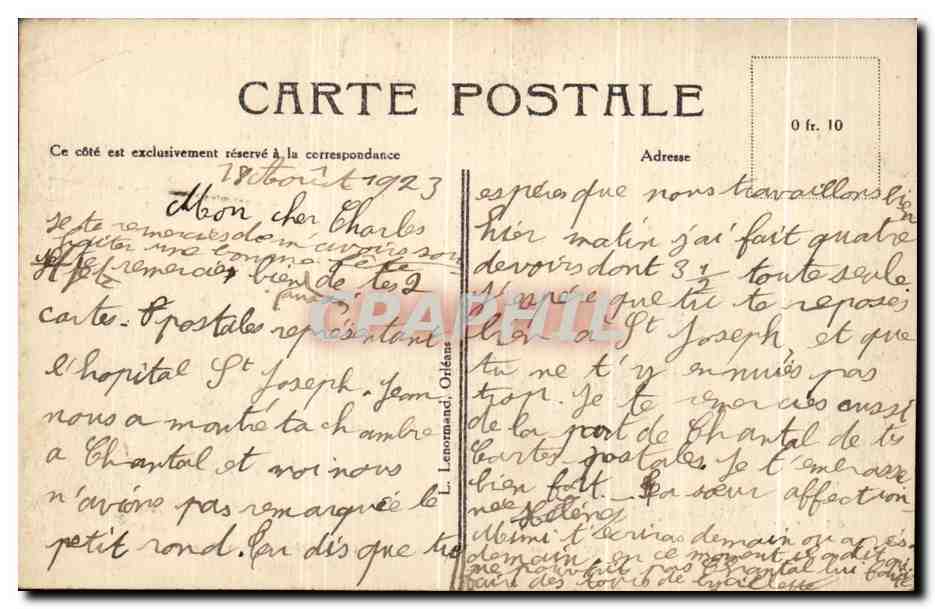 CARTE POSTALE
0 fr. 10
Ce côté est exclusivement réservé à la correspondance
Adresse
18 Août 1923
Mon cher Charles
Je te remercies de m'avoir sou-
haiter une bonne fête
Je te remercies bien de tes 2
cartes. postales représentant
l'hopital St Joseph. Jean
nous a montré ta chambre
a Chantal et moi nous
n'avions pas remarquée le
petit rond. Tu dis que tu
espéres que nous travaillons bien
hier matin j'ai fait quatre
devoirs dont 3 1/2 toute seule.
J'espére que tu te reposes
bien a St Joseph et que
tu ne t'y ennuies pas
trop. Je te remercies aussi
de la part de Chantal de tes
Cartes postales. Je t'embrasse
bien fort. Ta sœur affection-
née Hélène
Mimi t'écriras demain ou aprés-
demain, en ce moment
ne pas Chantal lui
faire des tours de
L. Lenormand, Orléans
CPAPHIL